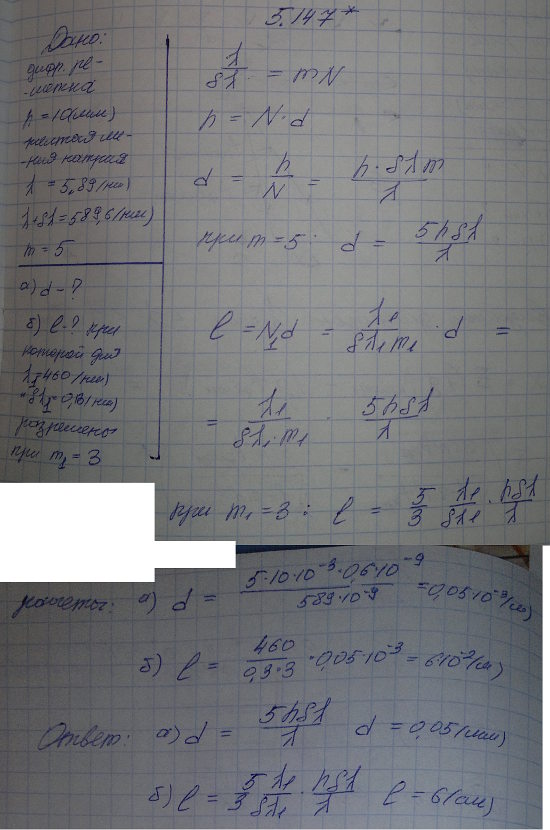 5.147*
Дано:
диф. ре-
-шетка
h = 10(мм)
желтая ли-
-ния натрия
λ = 5,89(нм)
λ+δλ = 589,6(нм)
m = 5
а) d - ?
б) l - ? при
которой для
λ₁=460(нм)
δλ₁=0,13(нм)
разрешены
при m₁ = 3
λ/δλ = mN
h = N·d
d = h/N = h·δλm/λ
при m=5: d = 5hδλ/λ
l = N₁d = λ₁/δλ₁m₁ · d =
= λ₁/δλ₁·m₁ · 5hδλ/λ
при m₁ = 3 : l = 5/3 λ₁/δλ₁ · hδλ/λ
расчеты: а) d = 5·10·10⁻³·0,6·10⁻⁹/589·10⁻⁹ = 0,05·10⁻³(м)
б) l = 460/0,3·3 · 0,05·10⁻³ = 6·10⁻²(м)
Ответ: а) d = 5hδλ/λ d = 0,05(мм)
б) l = 5/3 λ₁/δλ₁ · hδλ/λ l = 6(см)